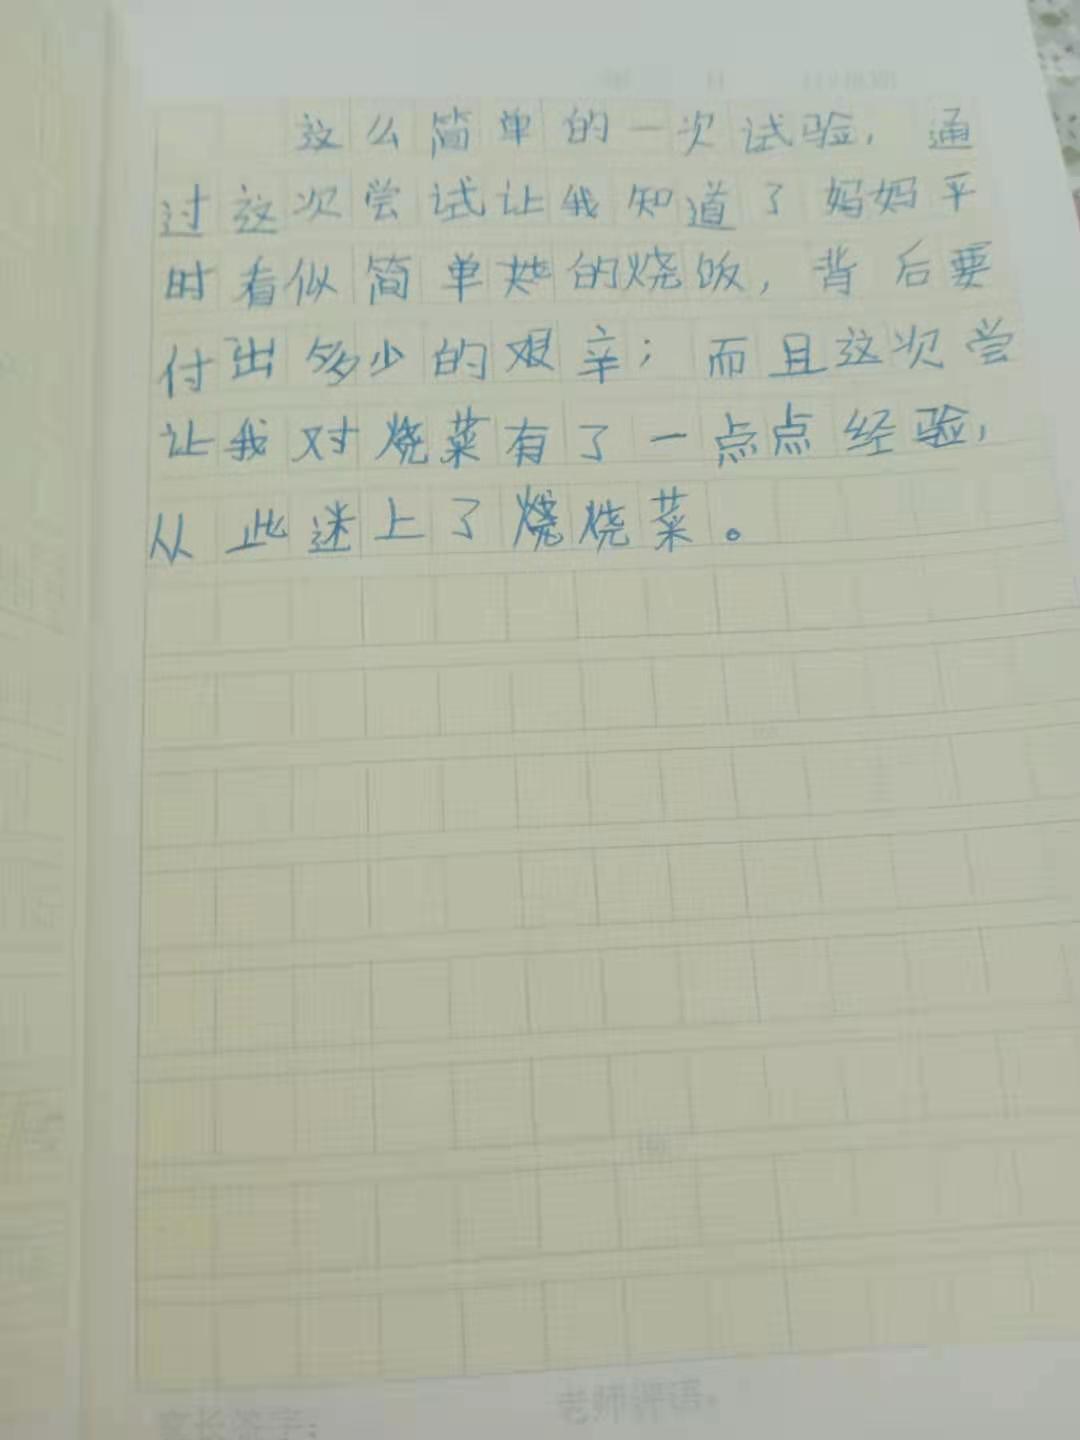 这么简单的一次试验，通
过这次尝试让我知道了妈妈平
时看似简单的烧饭，背后要
付出多少的艰辛；而且这次尝
让我对烧菜有了一点点经验，
从此迷上了烧烧菜。
家长签字：
老师评语：